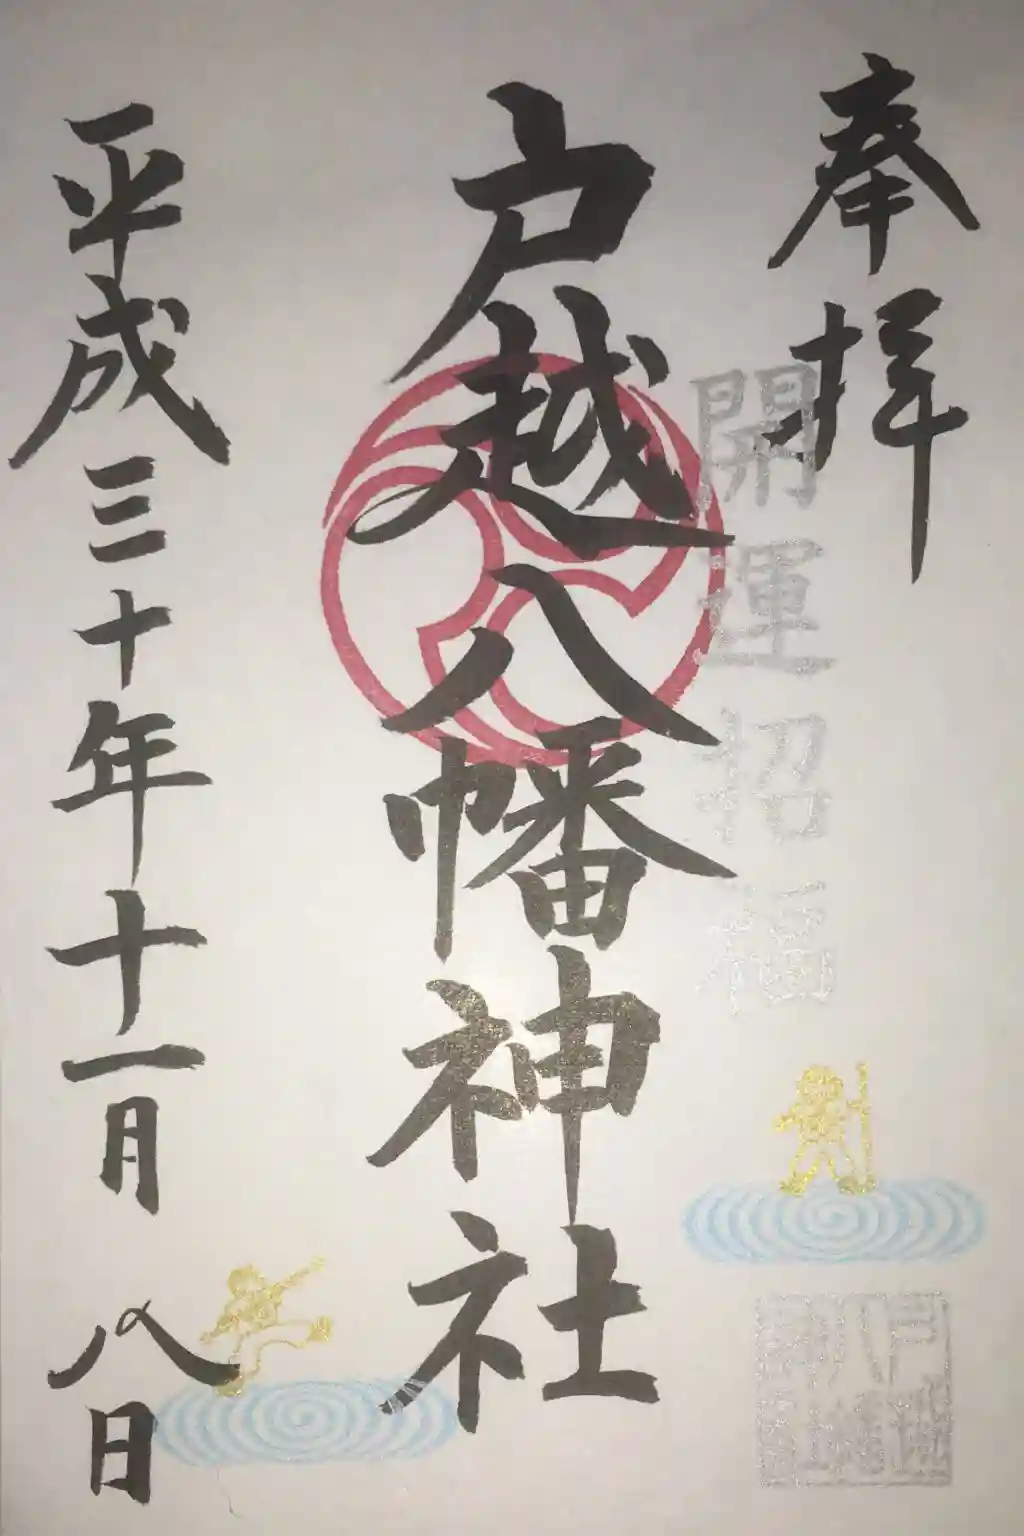 奉拝
開運招福
戸越八幡神社
平成三十年十一月八日
戸越八幡神社